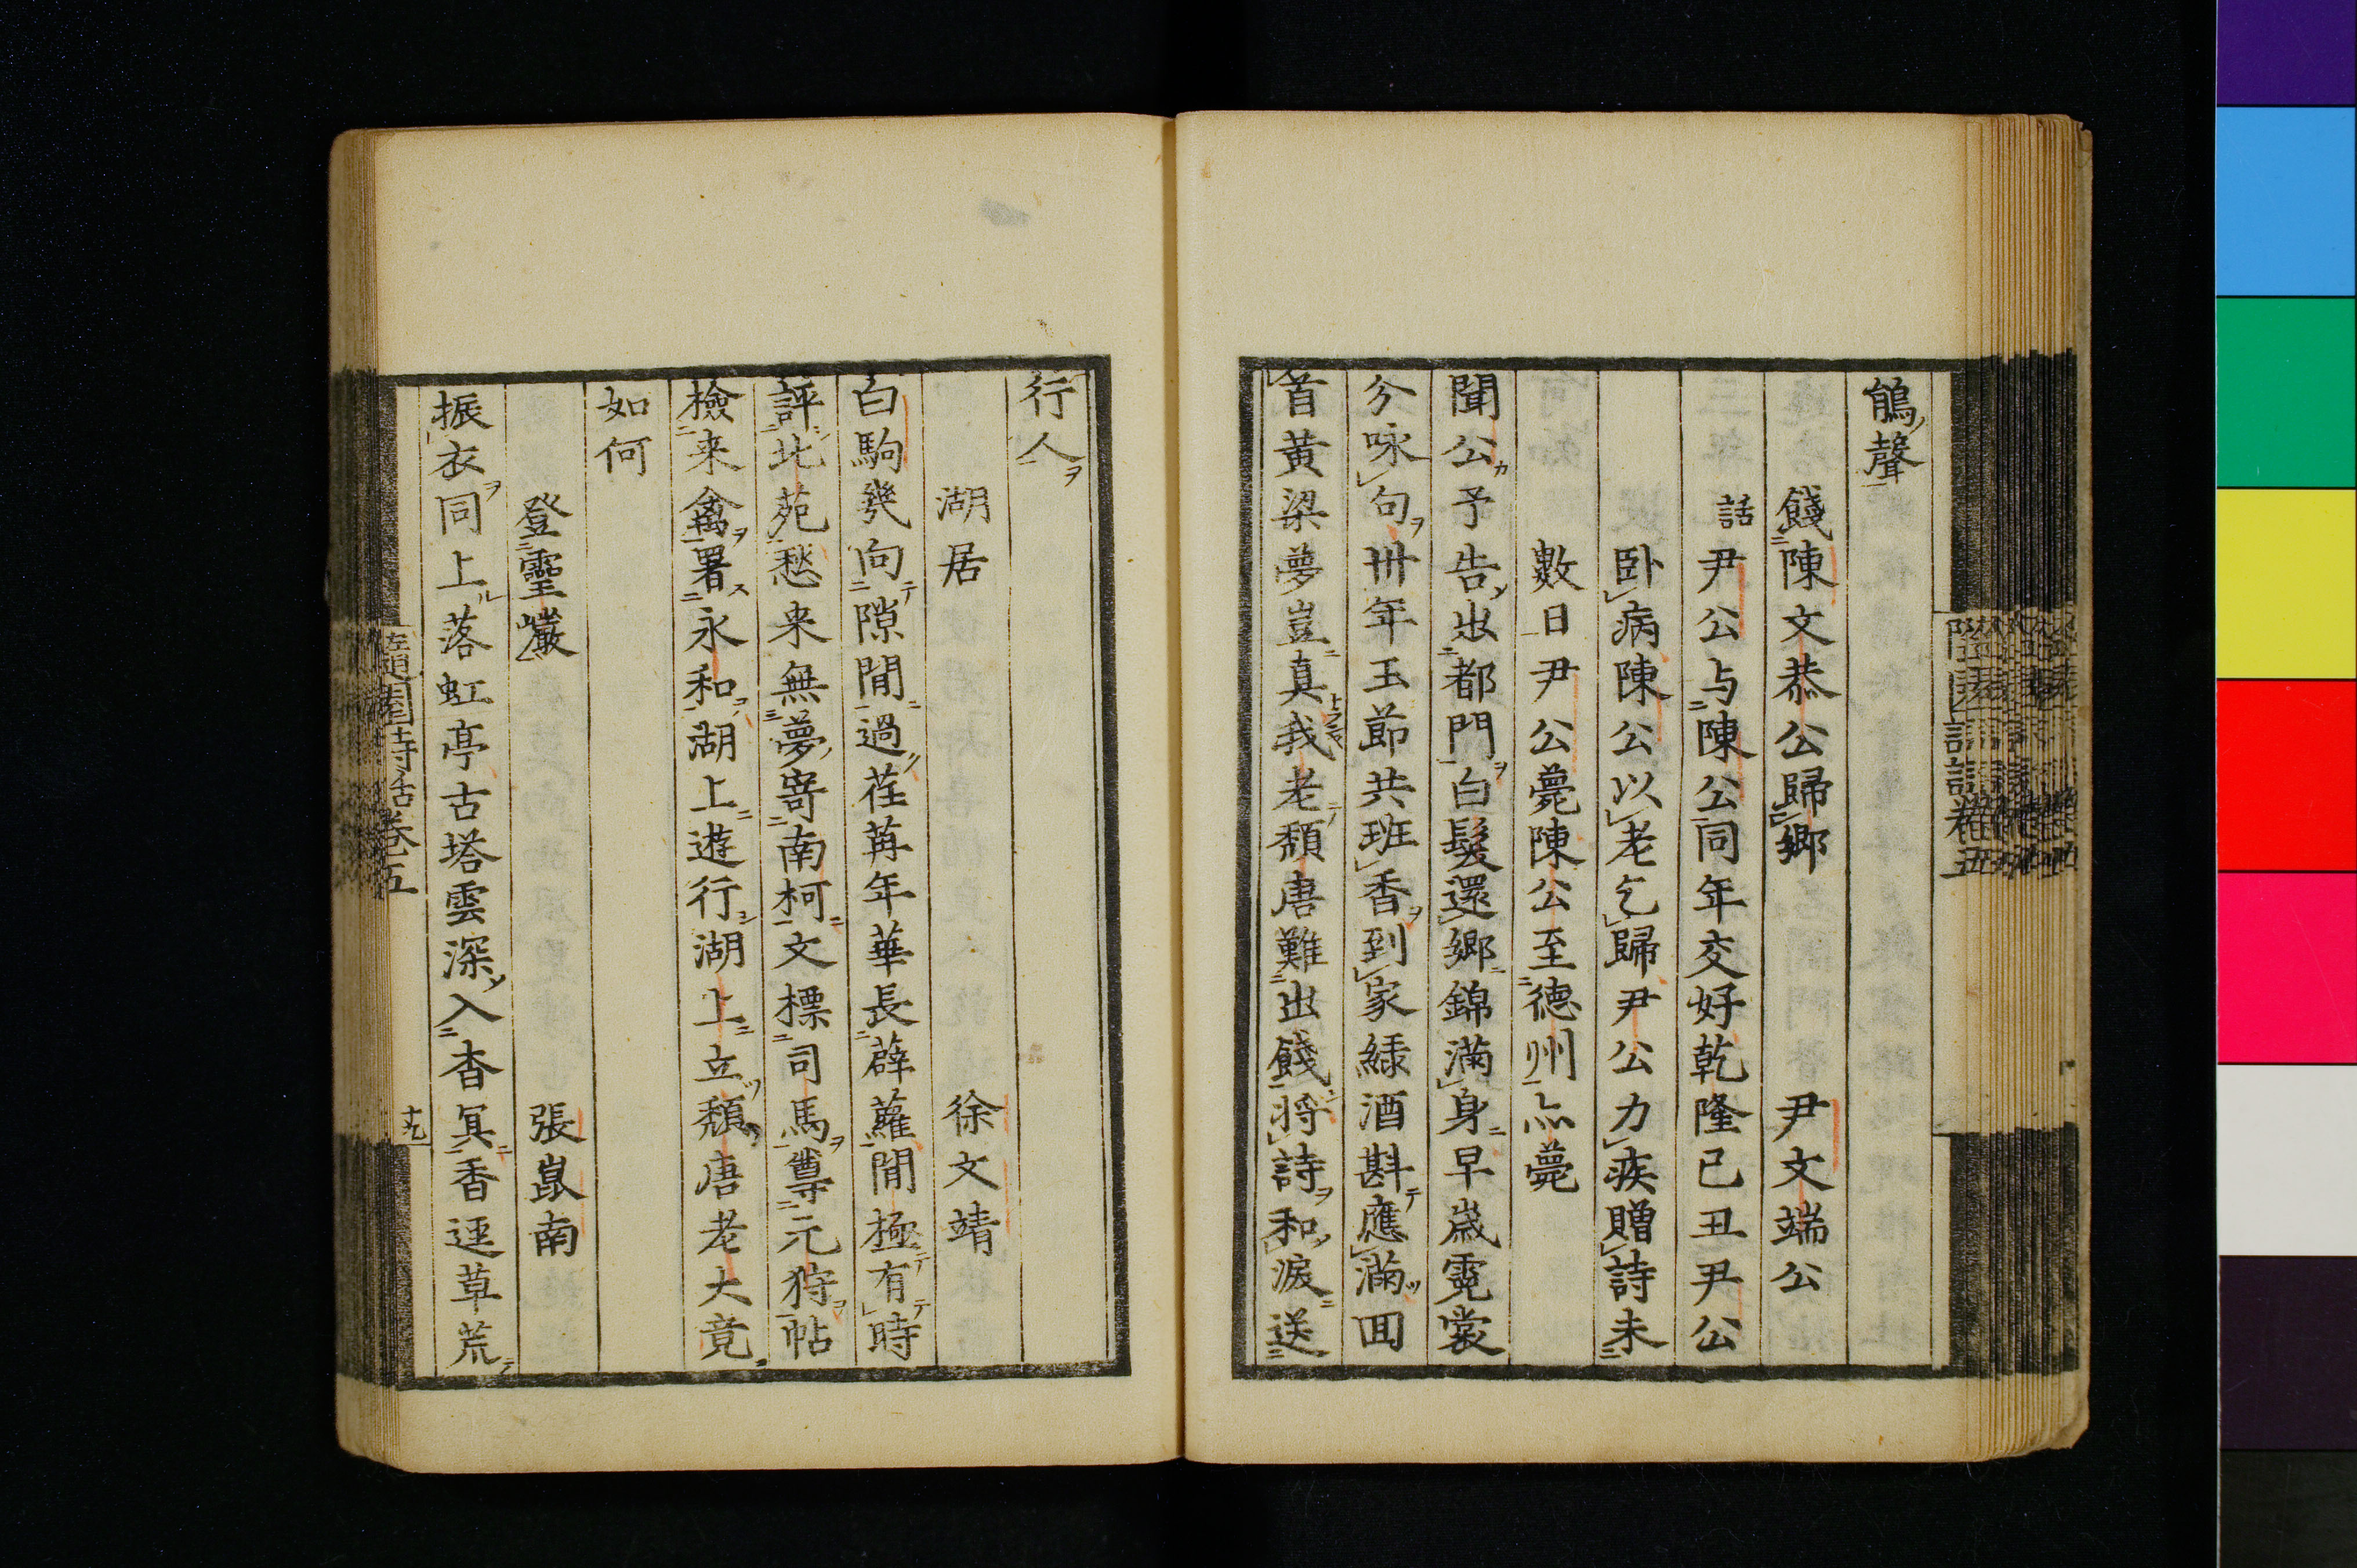 鵃聲
餞陳文恭公歸鄉　尹文端公
話尹公与陳公同年交好乾隆己丑尹公
臥病陳公以老乞歸尹公力疾贈詩未
數日尹公薨陳公至德州亦薨
聞公予告出都門白髮還鄉錦滿身早歲霓裳
兮咏句卅年玉節共班香到家綠酒斟應滿回
首黃粱夢豈真我老頹唐難出餞將詩和淚送
行人
湖居　徐文靖
白駒幾向隙間過荏苒年華長薜蘿閒極有時
評北苑愁来無夢寄南柯文標司馬尊元狩帖
檢来禽署永和湖上遊行湖上立頹唐老大竟
如何
登靈巖　張崑南
振衣同上落虹亭古塔雲深入杳冥香逕草荒
隨園詩話卷五
十九